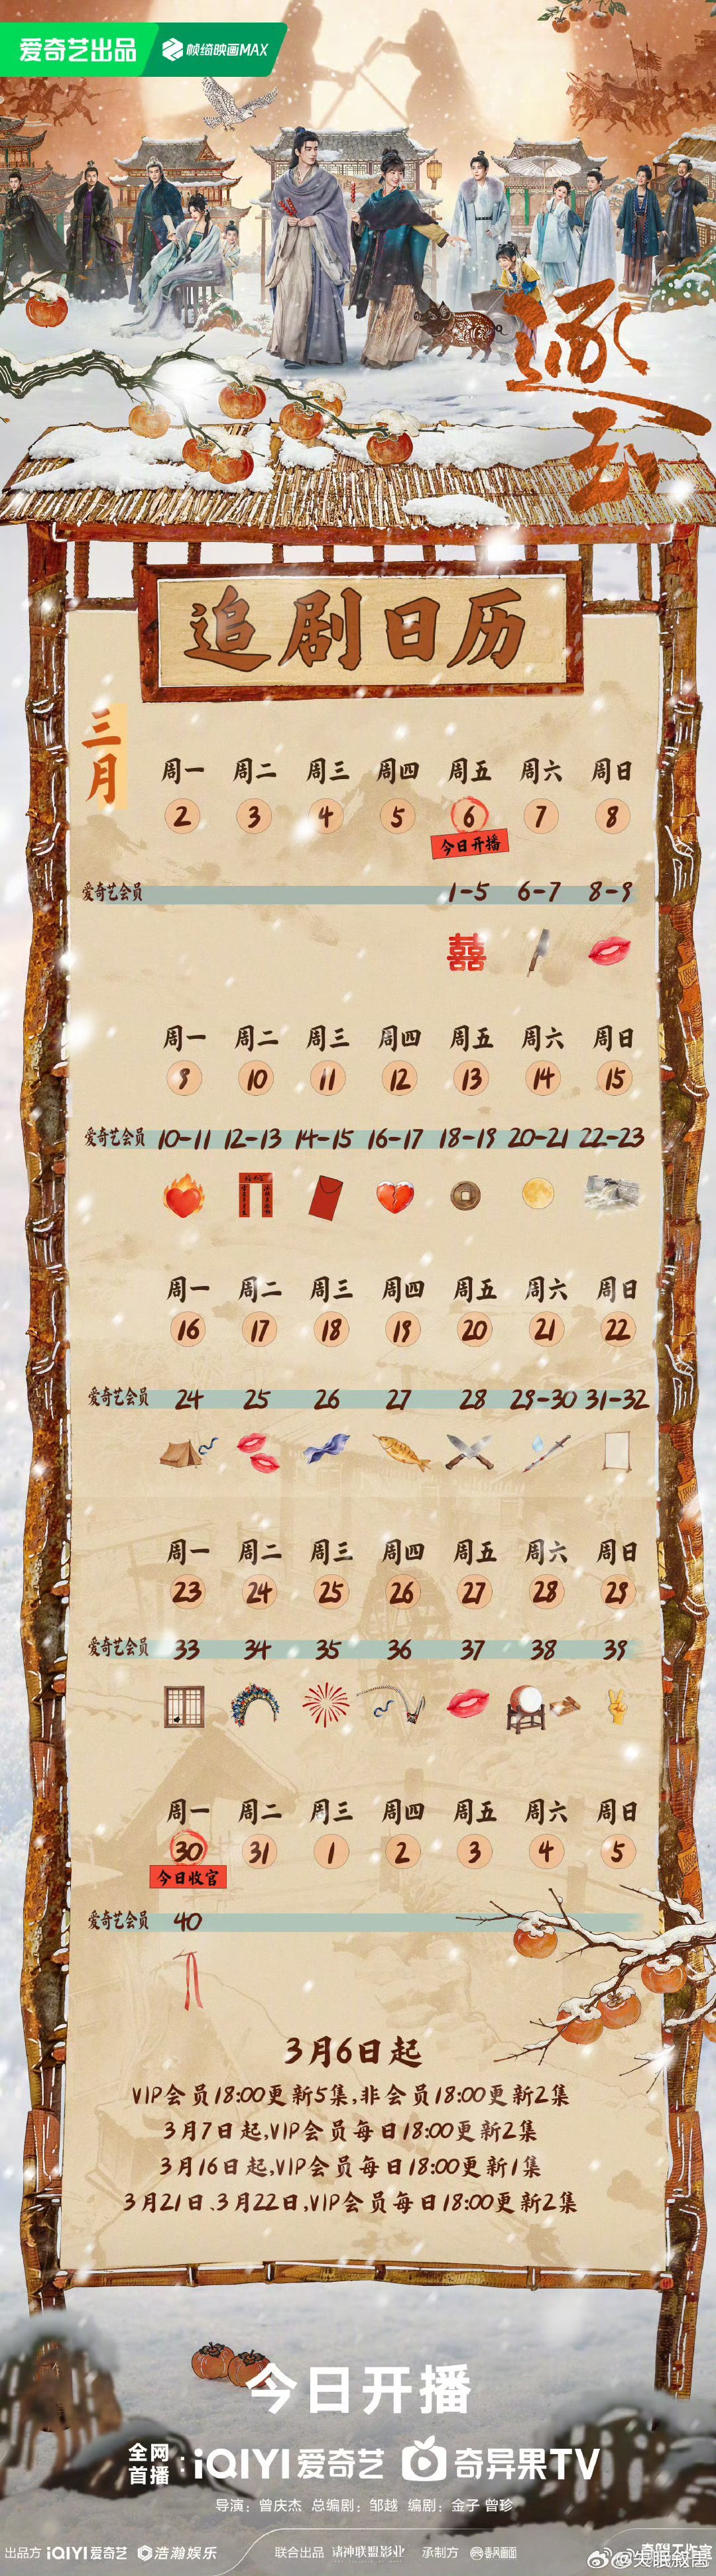 爱奇艺出品 帧绮映画MAX
逐玉
追剧日历
三月
周一 周二 周三 周四 周五 周六 周日
2 3 4 5 6 7 8
今日开播
爱奇艺会员 1-5 6-7 8-9
囍
周一 周二 周三 周四 周五 周六 周日
9 10 11 12 13 14 15
爱奇艺会员 10-11 12-13 14-15 16-17 18-19 20-21 22-23
周一 周二 周三 周四 周五 周六 周日
16 17 18 19 20 21 22
爱奇艺会员 24 25 26 27 28 29-30 31-32
周一 周二 周三 周四 周五 周六 周日
23 24 25 26 27 28 29
爱奇艺会员 33 34 35 36 37 38 39
周一 周二 周三 周四 周五 周六 周日
30 31 1 2 3 4 5
今日收官
爱奇艺会员 40
3月6日起
VIP会员18:00更新5集,非会员18:00更新2集
3月7日起,VIP会员每日18:00更新2集
3月16日起,VIP会员每日18:00更新1集
3月21日、3月22日,VIP会员每日18:00更新2集
今日开播
全网首播: iQIYI 爱奇艺 奇异果TV
导演: 曾庆杰 总编剧: 邹越 编剧: 金子 曾珍
出品方 iQIYI 爱奇艺 浩瀚娱乐 联合出品 诸神联盟影业 承制方